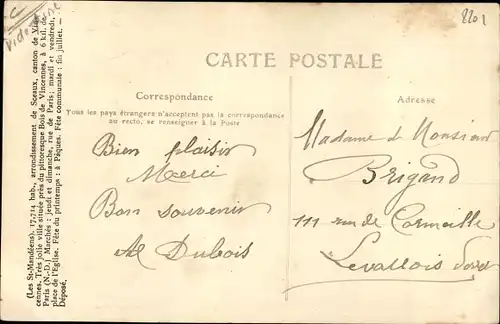 8201
CARTE POSTALE
Correspondance
Adresse
Tous les pays étrangers n'acceptent pas la correspondance
au recto, se renseigner à la Poste
Bien plaisir
Merci
Bon souvenir
Dubois
Madame & Monsieur
Brigand
111 rue de Cormeille
Levallois
(Les St-Mandéens). 17,714 hab., arrondissement de Sceaux, canton de Vin-
cennes. Très jolie ville située près du pittoresque Bois de Vincennes, à 6 kil. de
Paris (N.-D.) Marchés : jeudi et dimanche, rue de Paris ; mardi et vendredi,
place de l'Eglise. Fête du printemps : à Pâques. Fête communale : fin juillet. —
Déposé.